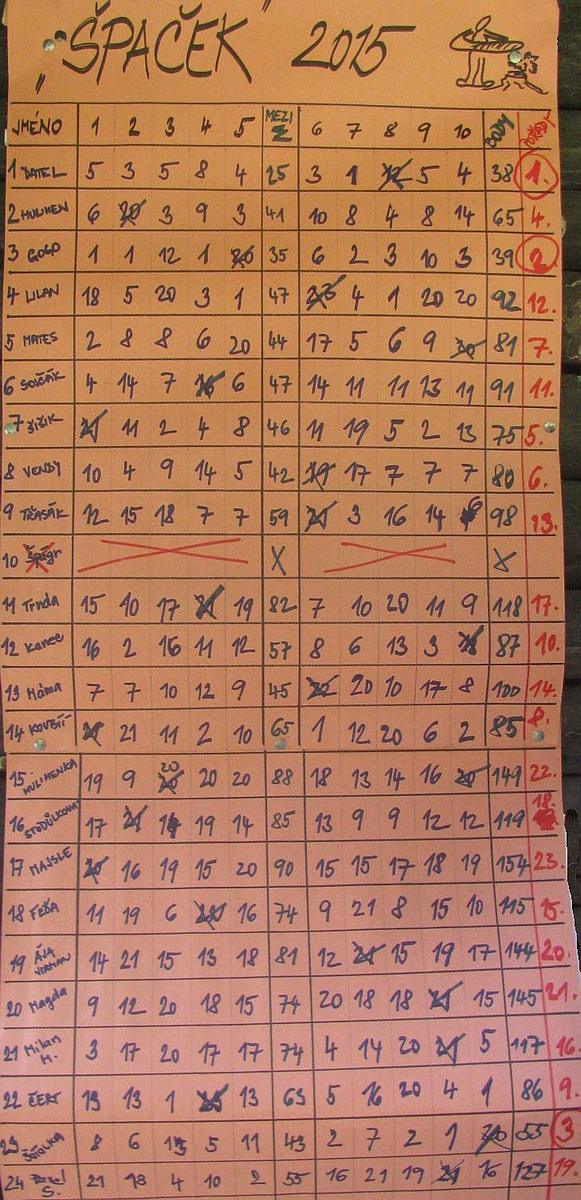 „ŠPAČEK" 2015
JMÉNO 1 2 3 4 5 MEZI Σ 6 7 8 9 10 BODY POŘADÍ
1 DATEL 5 3 5 8 4 25 3 1 12 5 4 38 1.
2 HULMEN 6 20 3 9 3 41 10 8 4 8 14 65 4.
3 GOGO 1 1 12 1 20 35 6 2 3 10 3 39 2.
4 LILAN 18 5 20 3 1 47 23 4 1 20 20 92 12.
5 MATES 2 8 8 6 20 44 17 5 6 9 20 81 7.
6 SOLČÁK 4 14 7 16 6 47 14 11 11 13 11 91 11.
7 ŽIŽIK 21 11 2 4 8 46 11 19 5 2 13 75 5.
8 VENDY 10 4 9 14 5 42 19 17 7 7 7 80 6.
9 TŘASÁK 12 15 18 7 7 59 21 3 16 14 6 98 13.
10 Špágr X X
11 Trnda 15 10 17 21 19 82 7 10 20 11 9 118 17.
12 Kanec 16 2 16 11 12 57 8 6 13 3 21 87 10.
13 Máma 7 7 10 12 9 45 22 20 10 17 8 100 14.
14 21 21 11 2 10 65 1 12 20 6 2 85 8.
15 HULIHENKA 19 9 20 20 20 88 18 13 14 16 20 149 22.
16 17 21 14 19 14 85 13 9 9 12 12 119 18.
17 MAJSLE 20 16 19 15 20 90 15 15 17 18 19 154 23.
18 FEŠA 11 19 6 21 16 74 9 21 8 15 10 115 15.
19 ÁJA 14 21 15 13 18 81 12 21 15 19 17 144 20.
20 Magda 9 12 20 18 15 74 20 18 18 21 15 145 21.
21 Milan M. 3 17 20 17 17 74 4 14 20 21 5 117 16.
22 ČERT 13 13 1 25 13 63 5 16 20 4 1 86 9.
23 8 6 13 5 11 43 2 7 2 1 20 55 3
24 S. 21 18 4 10 2 55 16 21 19 21 16 127 19.